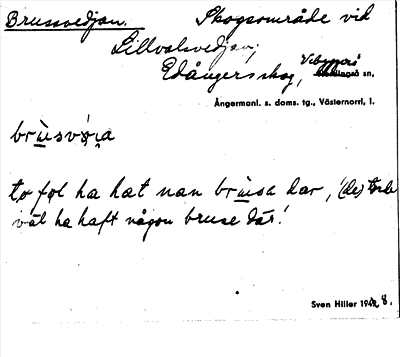 Brussvedjan. Skogsområde vid
Lillvalsvedjan,
Edångers skog, Vibyggerå
sn,
Ångermanl. s. doms. tg., Västernorrl. l.
brùsvǿi̯a
toføl ha hat nan brùsa dar, (de) torde
väl ha haft någon bruse där!
Sven Hiller 1948.